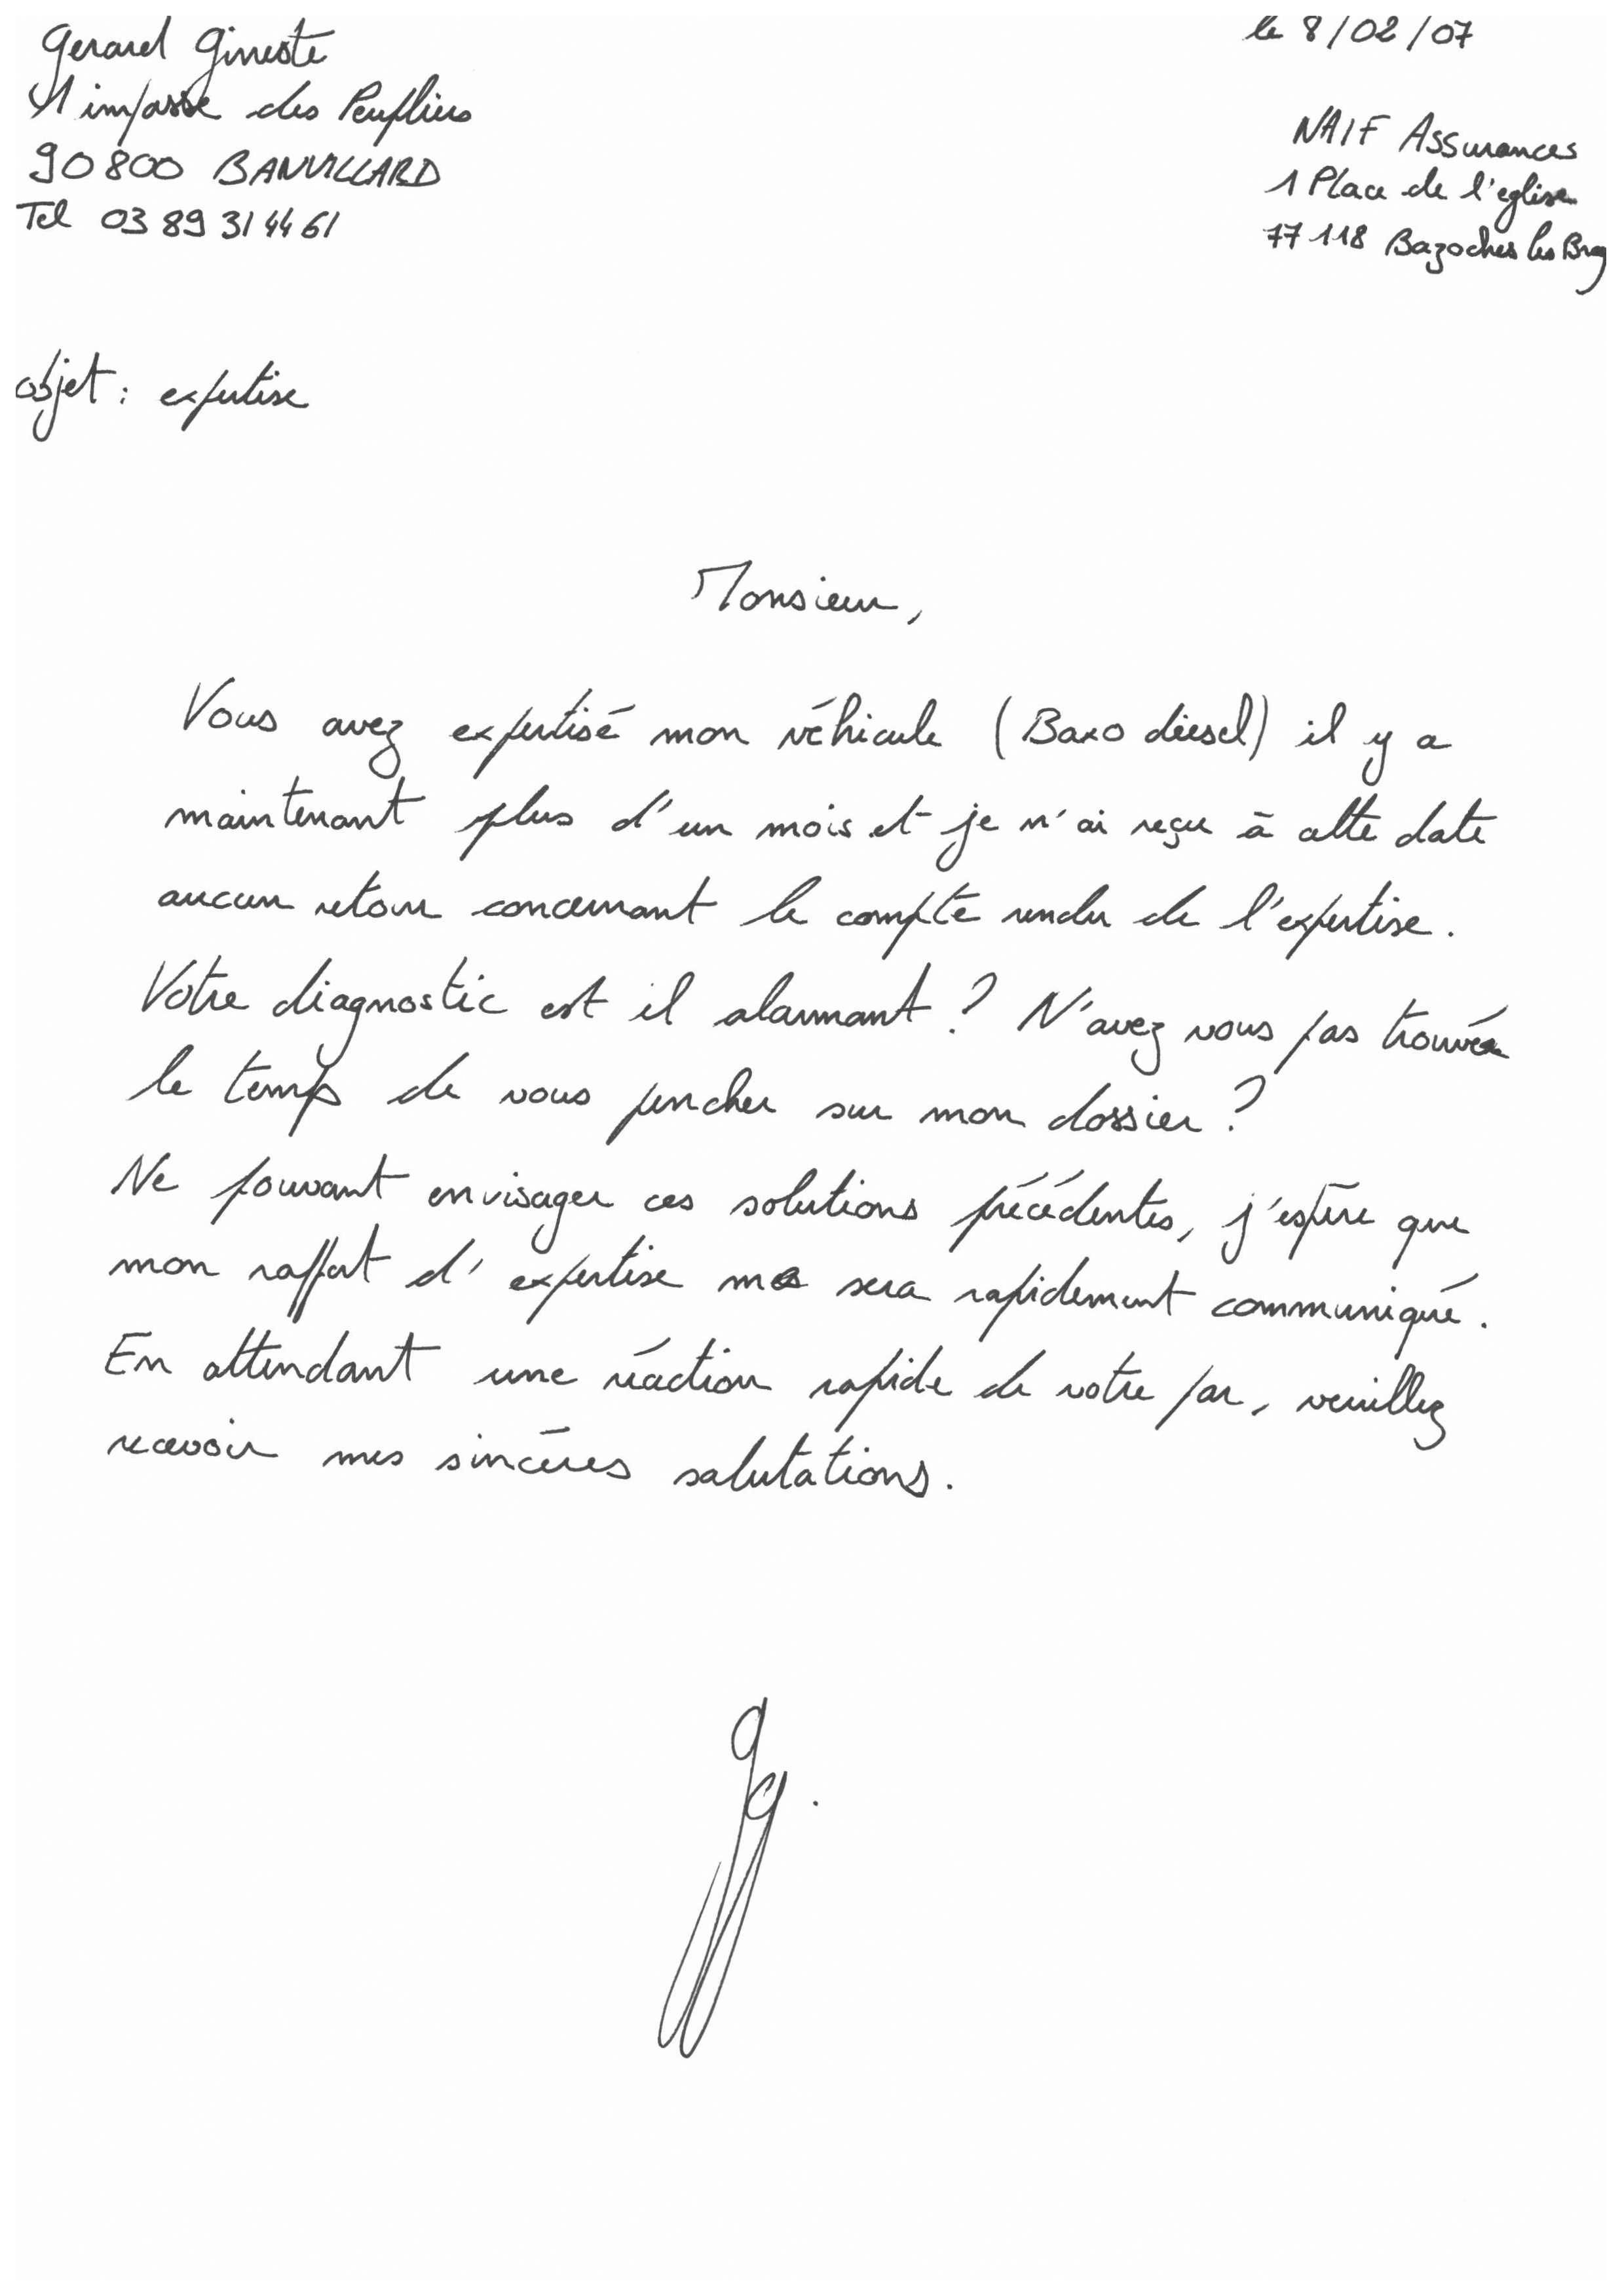 Gerard Gineste
1 impasse des Peupliers
90800 BANVILLARD
Tel 03 89 31 44 61
le 8/02/07
NAIF Assurances
1 Place de l'eglise
77118 Bazoches les Bray
objet : expertise
Monsieur,
Vous avez expertisé mon véhicule (Baxo diesel) il y a
maintenant plus d'un mois et je n'ai reçu à cette date
aucun retour concernant le compte rendu de l'expertise.
Votre diagnostic est il alarmant ? N'avez vous pas trouvé
le temps de vous pencher sur mon dossier ?
Ne pouvant envisager ces solutions précédentes, j'espère que
mon rapport d'expertise me sera rapidement communiqué.
En attendant une réaction rapide de votre par, veuillez
recevoir mes sincères salutations.